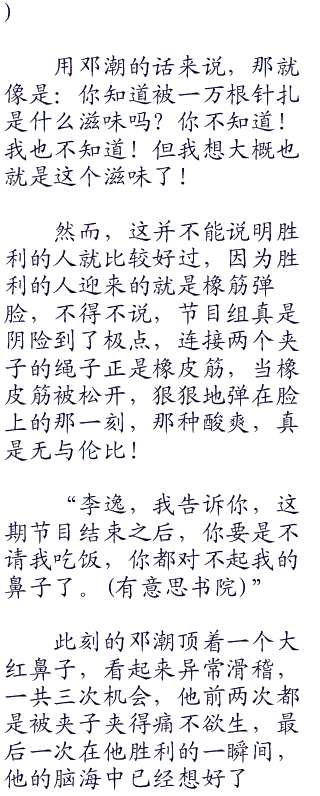 )
用邓潮的话来说，那就
像是：你知道被一万根针扎
是什么滋味吗？你不知道！
我也不知道！但我想大概也
就是这个滋味了！
然而，这并不能说明胜
利的人就比较好过，因为胜
利的人迎来的就是橡筋弹
脸，不得不说，节目组真是
阴险到了极点，连接两个夹
子的绳子正是橡皮筋，当橡
皮筋被松开，狠狠地弹在脸
上的那一刻，那种酸爽，真
是无与伦比！
“李逸，我告诉你，这
期节目结束之后，你要是不
请我吃饭，你都对不起我的
鼻子了。(有意思书院)”
此刻的邓潮顶着一个大
红鼻子，看起来异常滑稽，
一共三次机会，他前两次都
是被夹子夹得痛不欲生，最
后一次在他胜利的一瞬间，
他的脑海中已经想好了